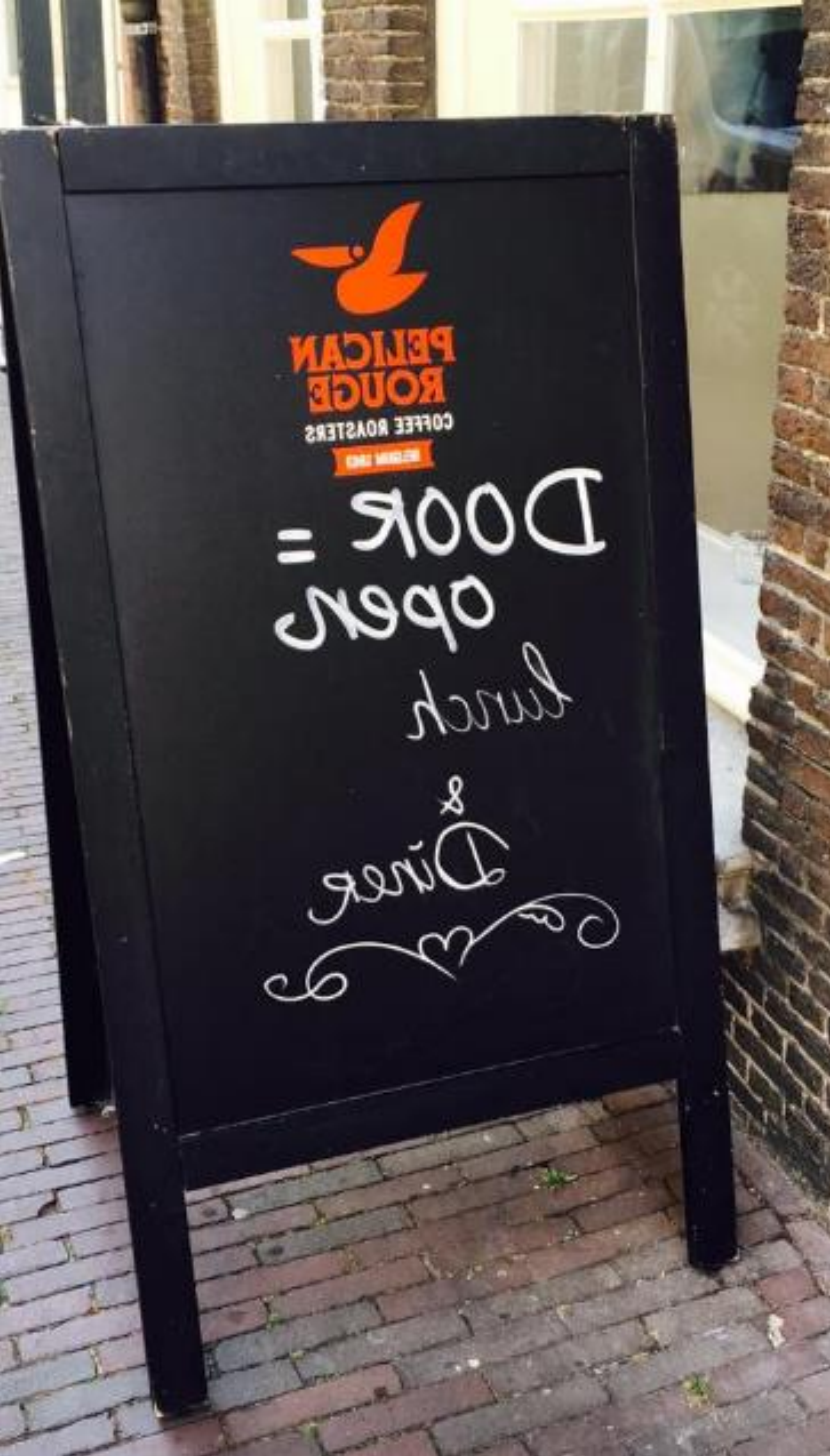 PELICAN
ROUGE
COFFEE ROASTERS
BELGIUM 1863
DOOR =
open
lunch
&
Diner